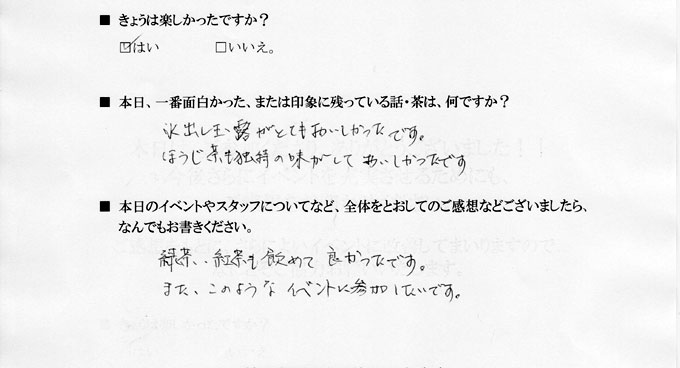 ■ きょうは楽しかったですか？
☑はい □いいえ。
■ 本日、一番面白かった、または印象に残っている話・茶は、何ですか？
氷出し玉露がとてもおいしかったです。
ほうじ茶も独特の味がして おいしかったです
■ 本日のイベントやスタッフについてなど、全体をとおしてのご感想などございましたら、
なんでもお書きください。
緑茶、紅茶も飲めて 良かったです。
また、このような イベントに参加したいです。